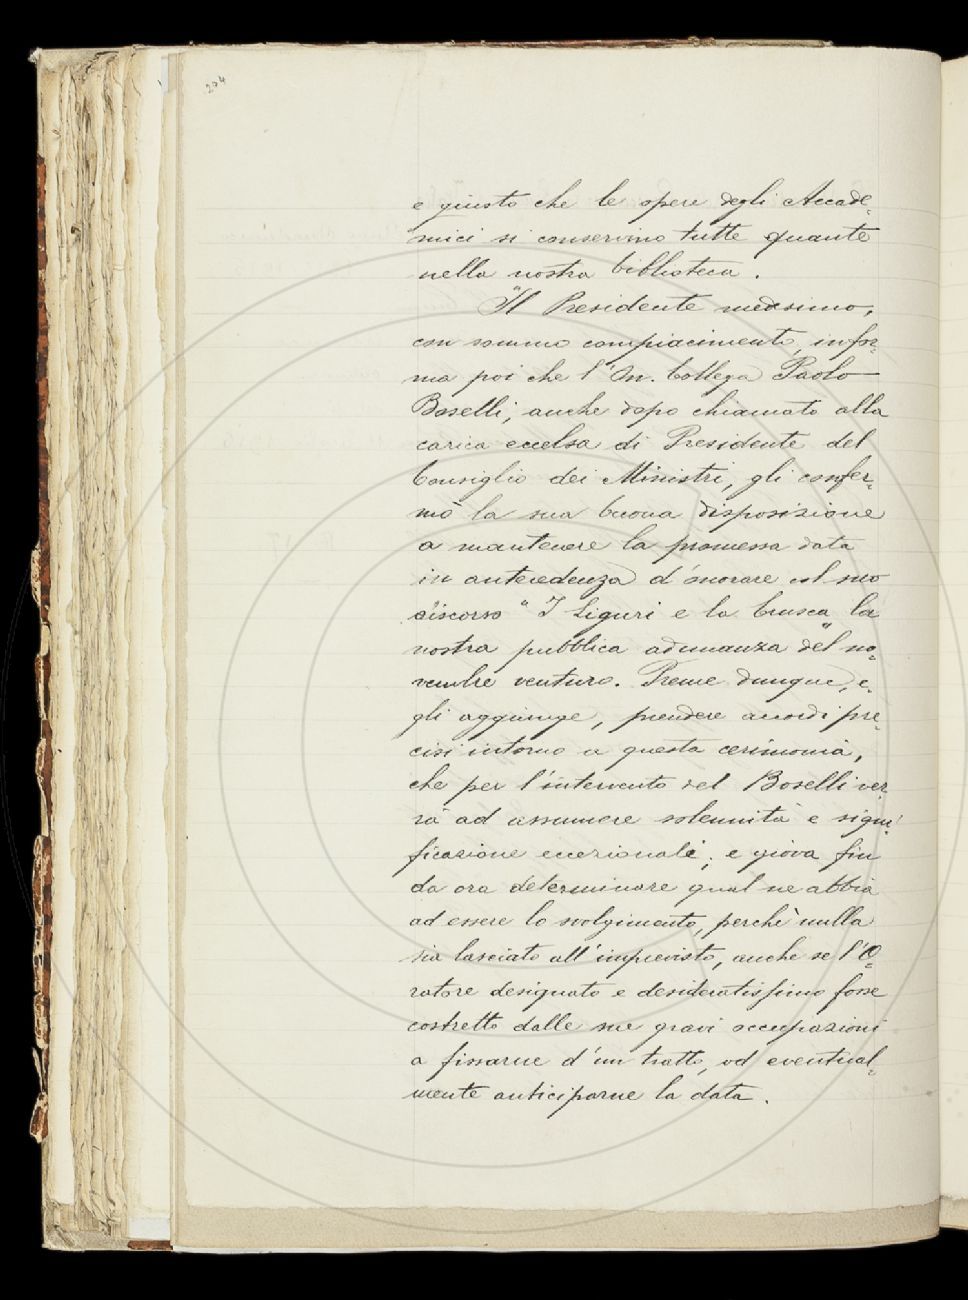 204
e giusto che le opere degli Accade=
mici si conservino tutte quante
nella nostra biblioteca.
Il Presidente medesimo,
con sommo compiacimento, infor=
ma poi che l'On. Collega Paolo
Boselli, anche dopo chiamato alla
carica eccelsa di Presidente del
Consiglio dei Ministri, gli confer=
mò la sua buona disposizione
a mantenere la promessa data
in antecedenza d'onorare col suo
discorso "I Liguri e la Crusca" la
nostra pubblica adunanza del no=
vembre venturo. Preme dunque, e=
gli aggiunge, prendere accordi pre=
cisi intorno a questa cerimonia,
che per l'intervento del Boselli ver=
rà ad assumere solennità e signi=
ficazione eccezionale; e giova fin
da ora determinare qual ne abbia
ad essere lo svolgimento, perchè nulla
sia lasciato all'imprevisto, anche se l'O=
ratore designato e desideratissimo fosse
costretto dalle sue gravi occupazioni
a fissarne d'un tratto, od eventual=
mente anticiparne la data.